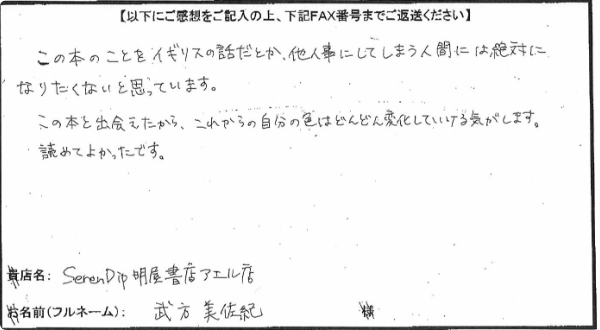 【以下にご感想をご記入の上、下記FAX番号までご返送ください】
この本のことをイギリスの話だとか、他人事にしてしまう人間には絶対に
なりたくないと思っています。
この本と出会えたから、これからの自分の色はどんどん変化していける気がします。
読めてよかったです。
貴店名： SerenDip 明屋書店アエル店
お名前（フルネーム）： 武方 美佐紀 様